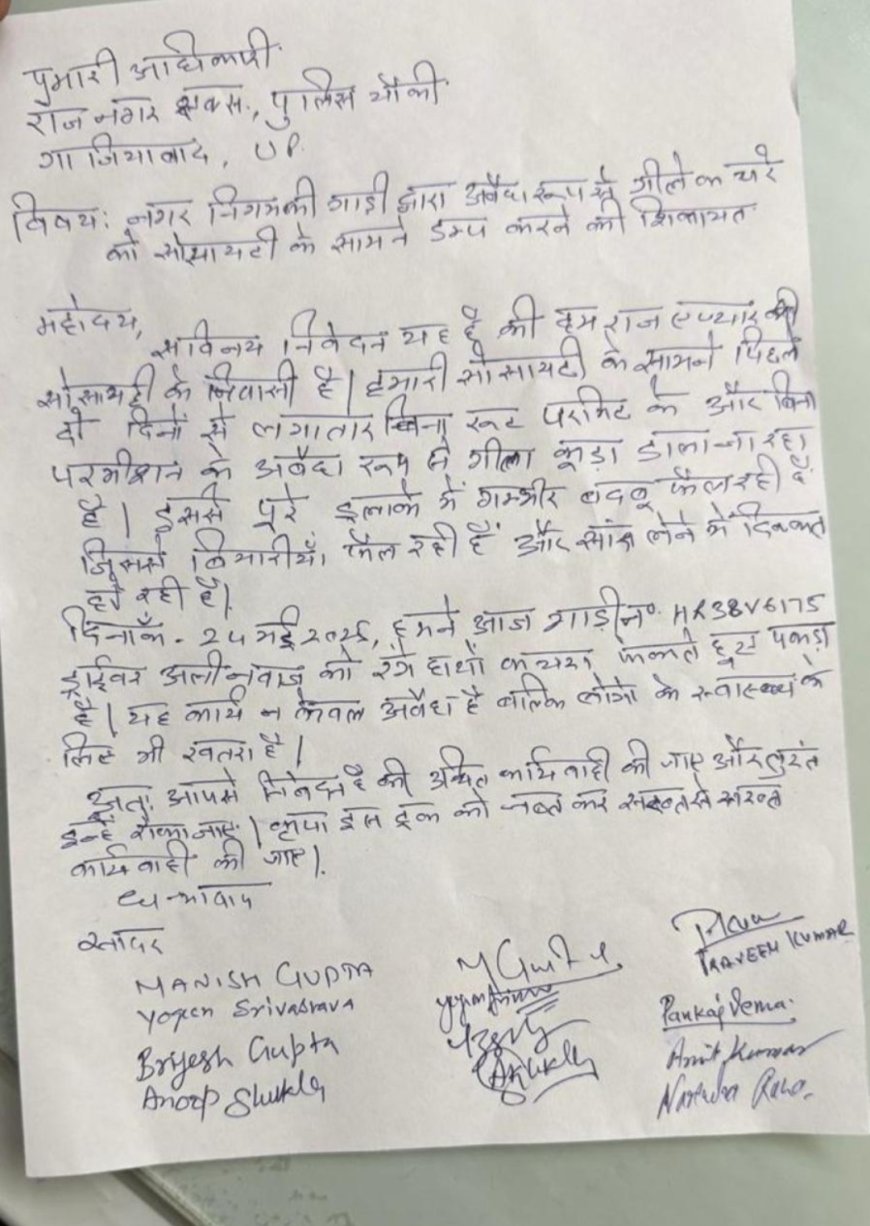 प्रभारी अधिकारी
राज नगर एक्स., पुलिस चौकी
गाजियाबाद, UP.
विषय: नगर निगम की गाड़ी द्वारा अवैध रूप से गीले कचरे
को सोसायटी के सामने डम्प करने की शिकायत
महोदय,
सविनय निवेदन यह है की हम राज एम्पायर की
सोसायटी के निवासी है। हमारी सोसायटी के सामने पिछले
दो दिनों से लगातार बिना रूट परमिट के और बिना
परमीशन के अवैध रूप से गीला कूड़ा डाला जा रहा
है। इससे पूरे इलाके में गम्भीर बदबू फैल रही है
जिससे बिमारीयाँ फैल रही हैं और सांस लेने में दिक्कत
हो रही है।
दिनाँक - 24 मई 2025, हमने आज गाड़ी नº HR38V6175
ड्राईवर अली नवाज को रंगे हाथों कचरा फेंकते हुए पकड़ा
है। यह कार्य न केवल अवैध है बल्कि लोगो के स्वास्थ्य के
लिए भी खतरा है।
अतः आपसे निवेदन है की उचित कार्यवाही की जाए और तुरंत
इन्हें रोका जाए। कृपा इस ट्रक को जब्त कर सख्त से सख्त
कार्यवाही की जाए।
धन्यवाद
MANISH GUPTA
PRAVEEN KUMAR
Yogesh Srivastava
Pankaj Verma
Brijesh Gupta
Amit Kumar
Anoop Shukla
Narendra